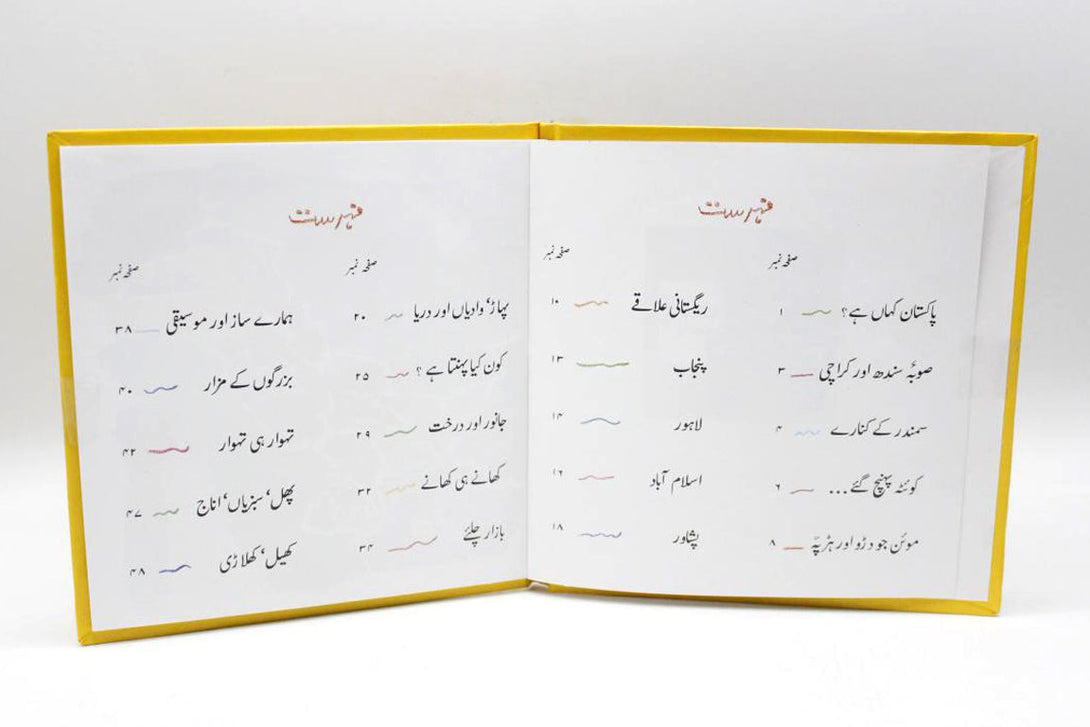 فہرست
صفحہ نمبر
پاکستان کہاں ہے؟ ۱
صوبۂ سندھ اور کراچی ۲
سمندر کے کنارے ۴
کوئٹہ پہنچ گئے... ۶
موئن جو دڑو اور ہڑپّہ ۸
صفحہ نمبر
ریگستانی علاقے ۱۰
پنجاب ۱۳
لاہور ۱۴
اسلام آباد ۱۶
پشاور ۱۸
فہرست
صفحہ نمبر
پہاڑ، وادیاں اور دریا ۲۰
کون کیا پہنتا ہے؟ ۲۵
جانور اور درخت ۲۹
کھانے ہی کھانے ۳۲
بازار چلئے ۳۴
صفحہ نمبر
ہمارے ساز اور موسیقی ۳۸
بزرگوں کے مزار ۴۰
تہوار ہی تہوار ۴۲
پھل، سبزیاں، اناج ۴۷
کھیل، کھلاڑی ۴۸